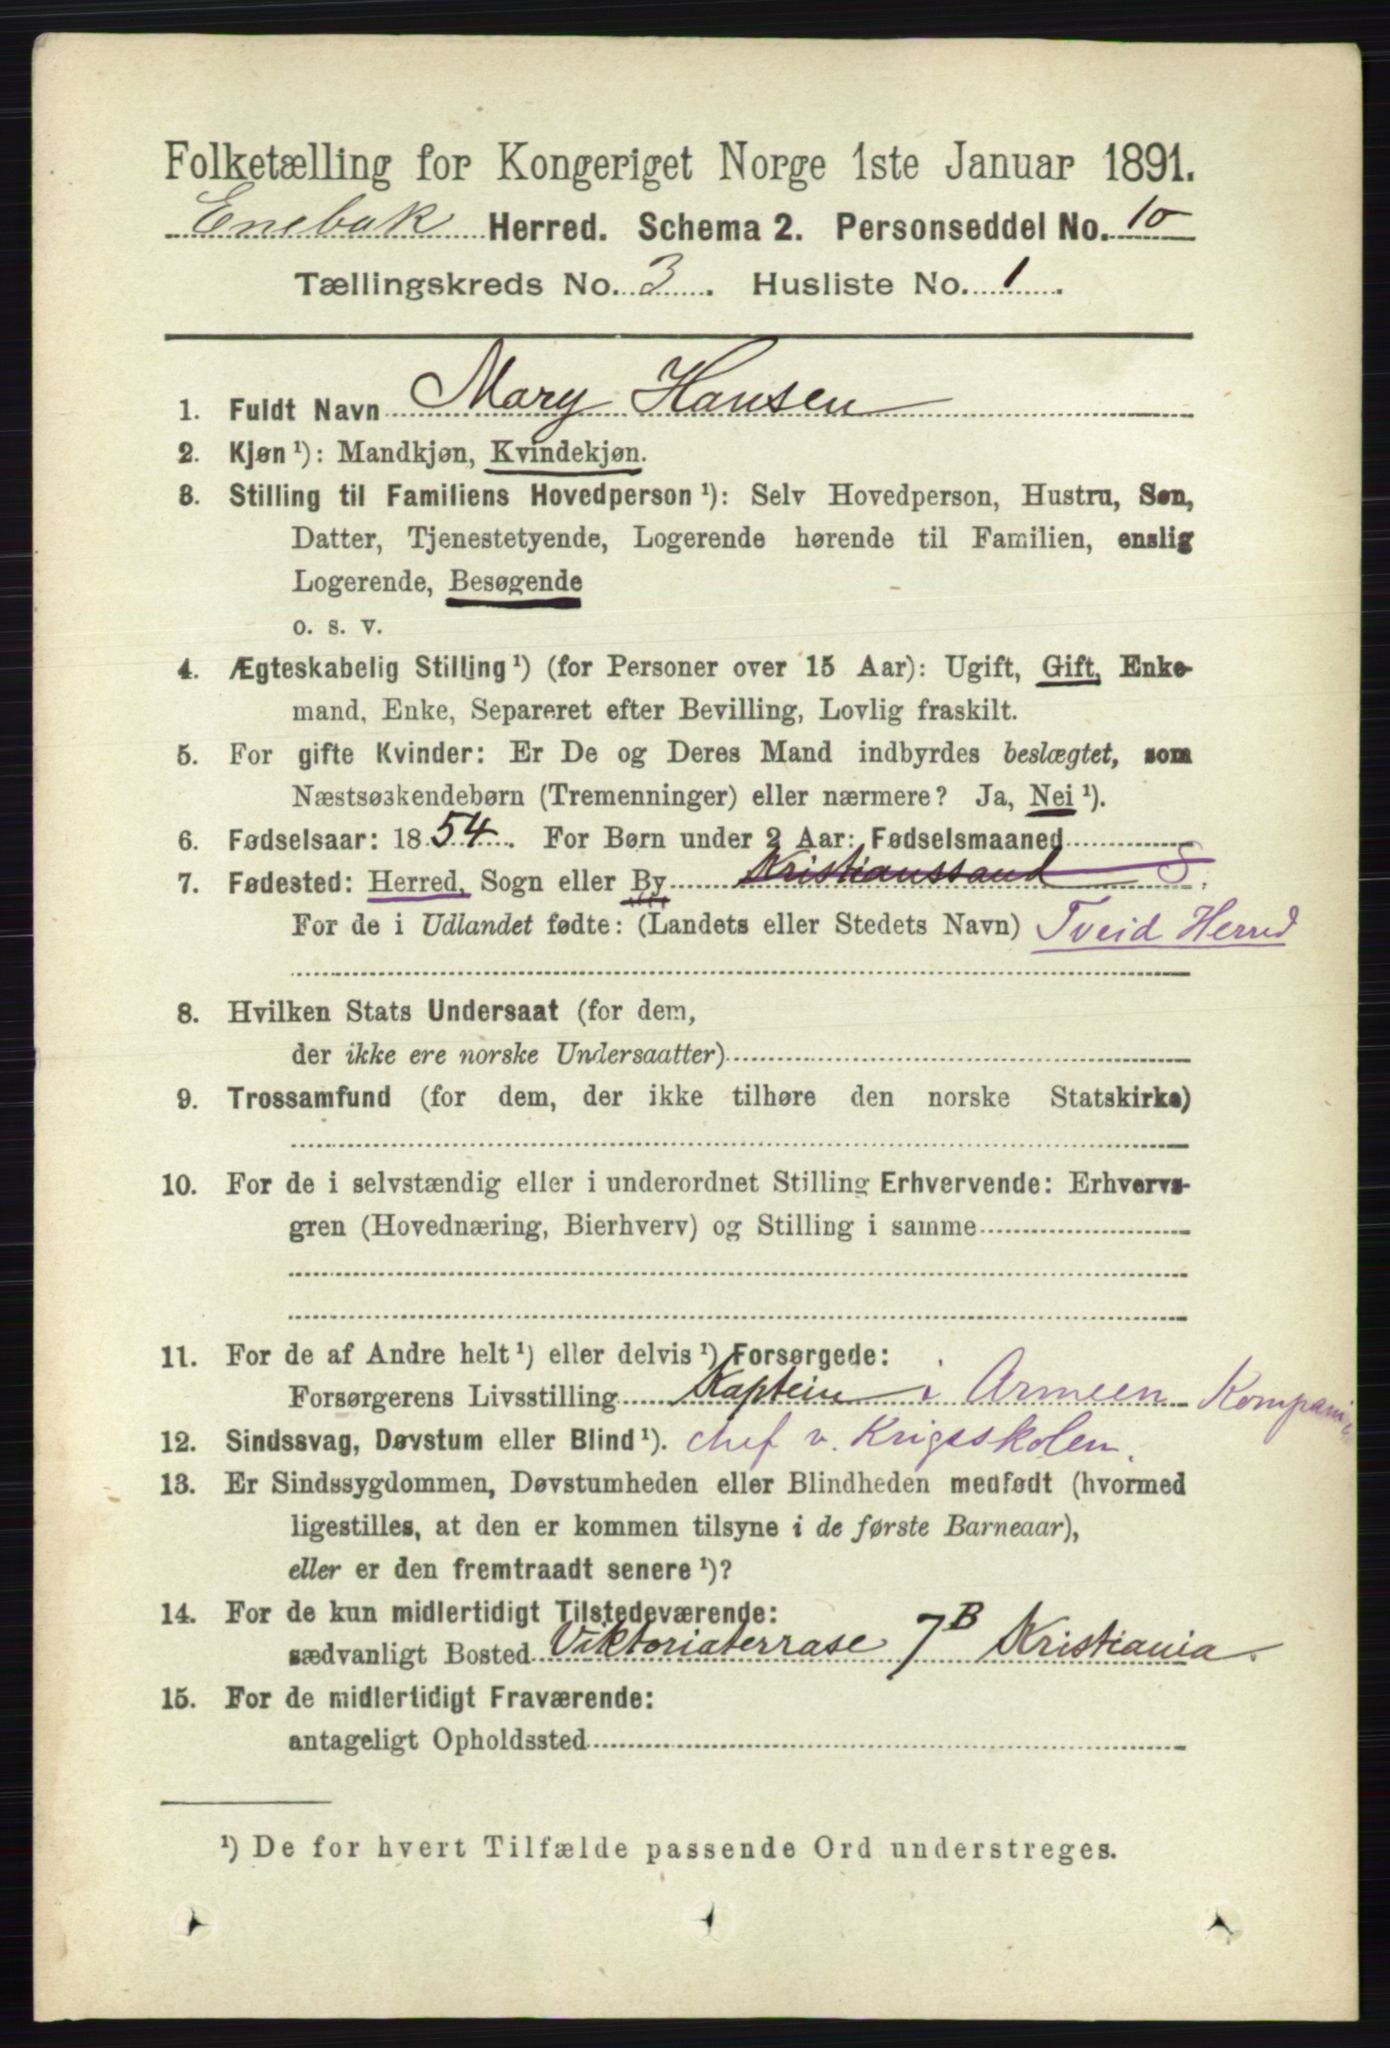 Folketælling for Kongeriget Norge 1ste Januar 1891.
Enebak Herred. Schema 2. Personseddel No. 10
Tællingskreds No. 3. Husliste No. 1.
1. Fuldt Navn Mary Hansen
2. Kjøn ¹): Mandkjøn, Kvindekjøn.
3. Stilling til Familiens Hovedperson ¹): Selv Hovedperson, Hustru, Søn,
Datter, Tjenestetyende, Logerende hørende til Familien, enslig
Logerende, Besøgende
o. s. v.
4. Ægteskabelig Stilling ¹) (for Personer over 15 Aar): Ugift, Gift, Enke-
mand, Enke, Separeret efter Bevilling, Lovlig fraskilt.
5. For gifte Kvinder: Er De og Deres Mand indbyrdes beslægtet, som
Næstsøskendebørn (Tremenninger) eller nærmere? Ja, Nei ¹).
6. Fødselsaar: 1854. For Børn under 2 Aar: Fødselsmaaned
7. Fødested: Herred, Sogn eller By Kristianssand S.
For de i Udlandet fødte: (Landets eller Stedets Navn) Tveid Herred
8. Hvilken Stats Undersaat (for dem,
der ikke ere norske Undersaatter)
9. Trossamfund (for dem, der ikke tilhøre den norske Statskirke)
10. For de i selvstændig eller i underordnet Stilling Erhvervende: Erhvervs-
gren (Hovednæring, Bierhverv) og Stilling i samme
11. For de af Andre helt ¹) eller delvis ¹) Forsørgede:
Forsørgerens Livsstilling Kaptein i Armeen Kompani
12. Sindssvag, Døvstum eller Blind ¹). chef v. Krigsskolen.
13. Er Sindssygdommen, Døvstumheden eller Blindheden medfødt (hvormed
ligestilles, at den er kommen tilsyne i de første Barneaar),
eller er den fremtraadt senere ¹)?
14. For de kun midlertidigt Tilstedeværende:
sædvanligt Bosted Viktoriaterrase 7B Kristiania.
15. For de midlertidigt Fraværende:
antageligt Opholdssted
¹) De for hvert Tilfælde passende Ord understreges.